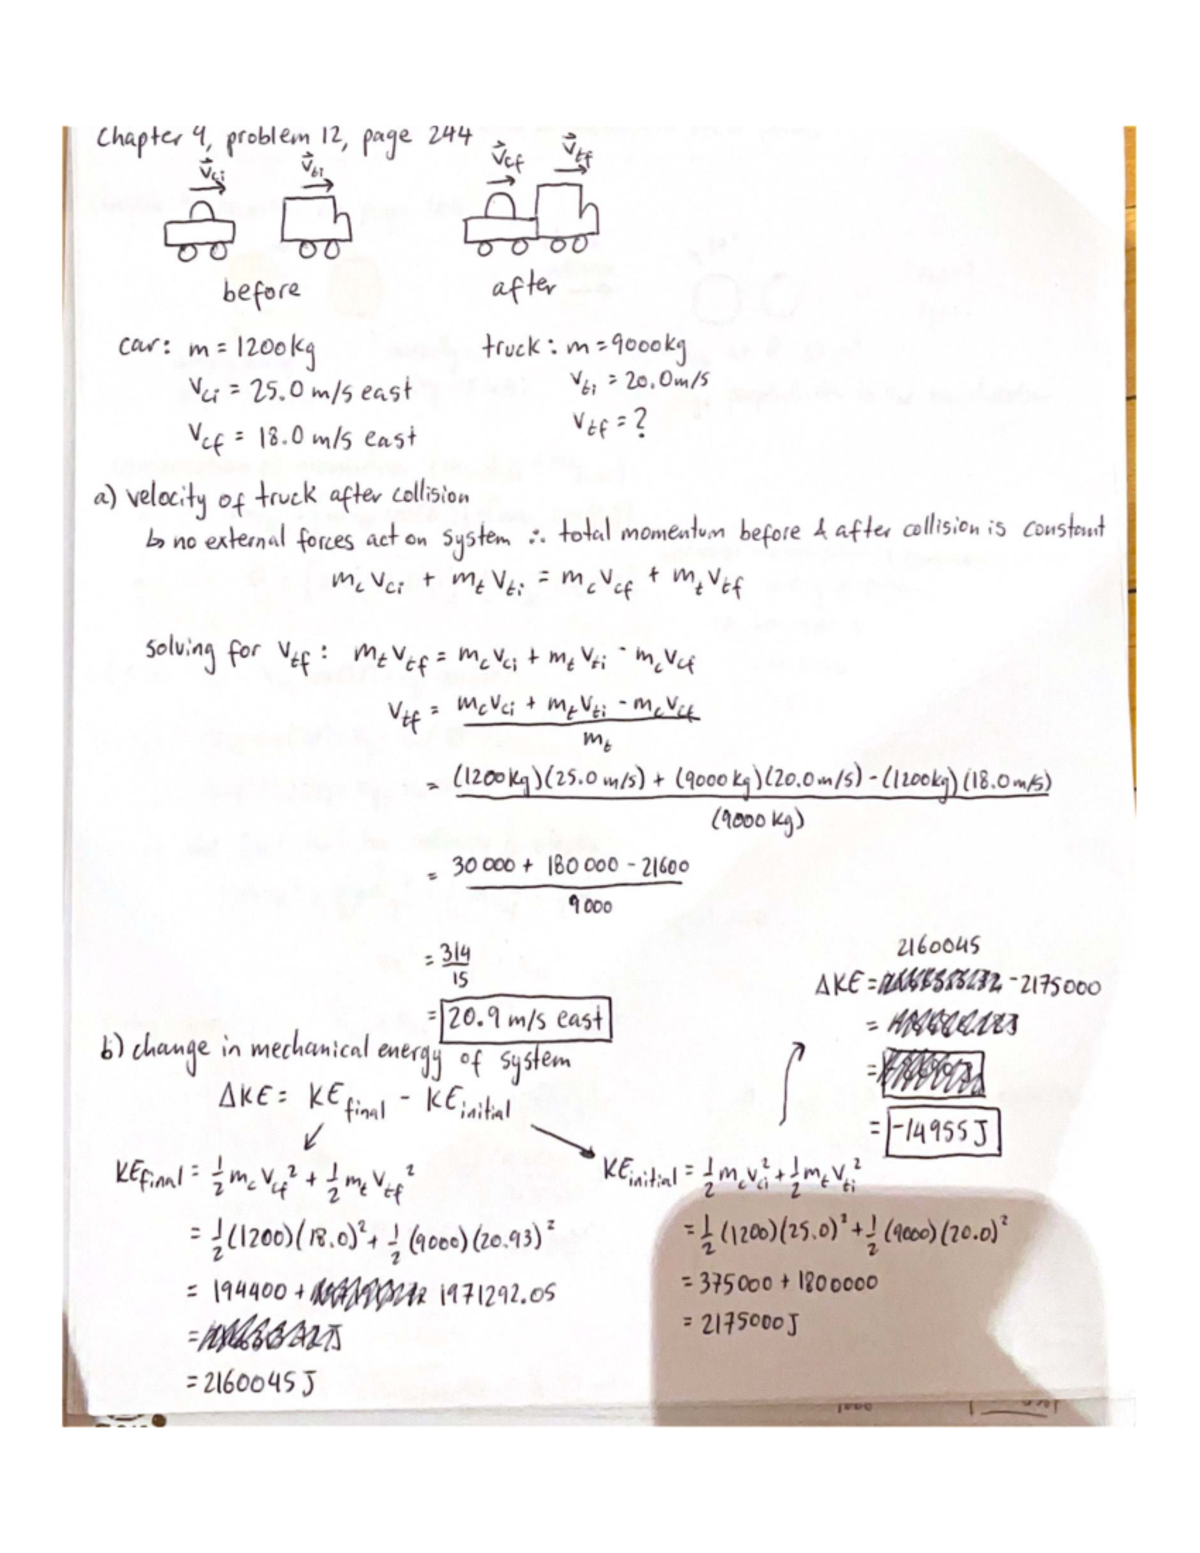 Chapter 9, problem 12, page 244
v⃗ci v⃗ti v⃗cf v⃗tf
before after
car: m = 1200kg truck: m = 9000kg
Vci = 25.0 m/s east Vti = 20.0m/s
Vcf = 18.0 m/s east Vtf = ?
a) velocity of truck after collision
↳ no external forces act on system ∴ total momentum before & after collision is constant
mcVci + mtVti = mcVcf + mtVtf
solving for Vtf: mtVtf = mcVci + mtVti - mcVcf
Vtf = mcVci + mtVti - mcVcf
mt
= (1200kg)(25.0 m/s) + (9000kg)(20.0m/s) - (1200kg)(18.0m/s)
(9000 kg)
= 30 000 + 180 000 - 21600
9000
= 314
15
= 20.9 m/s east
b) change in mechanical energy of system
ΔKE = KEfinal - KEinitial
KEfinal = ½ mcVcf² + ½ mtVtf²
= ½ (1200)(18.0)² + ½ (9000)(20.93)²
= 194400 + 1971292.05
= 2160045 J
KEinitial = ½ mcVci² + ½ mtVti²
= ½ (1200)(25.0)² + ½ (9000)(20.0)²
= 375000 + 1800000
= 2175000J
2160045
ΔKE = - 2175000
=
=
= -14955 J